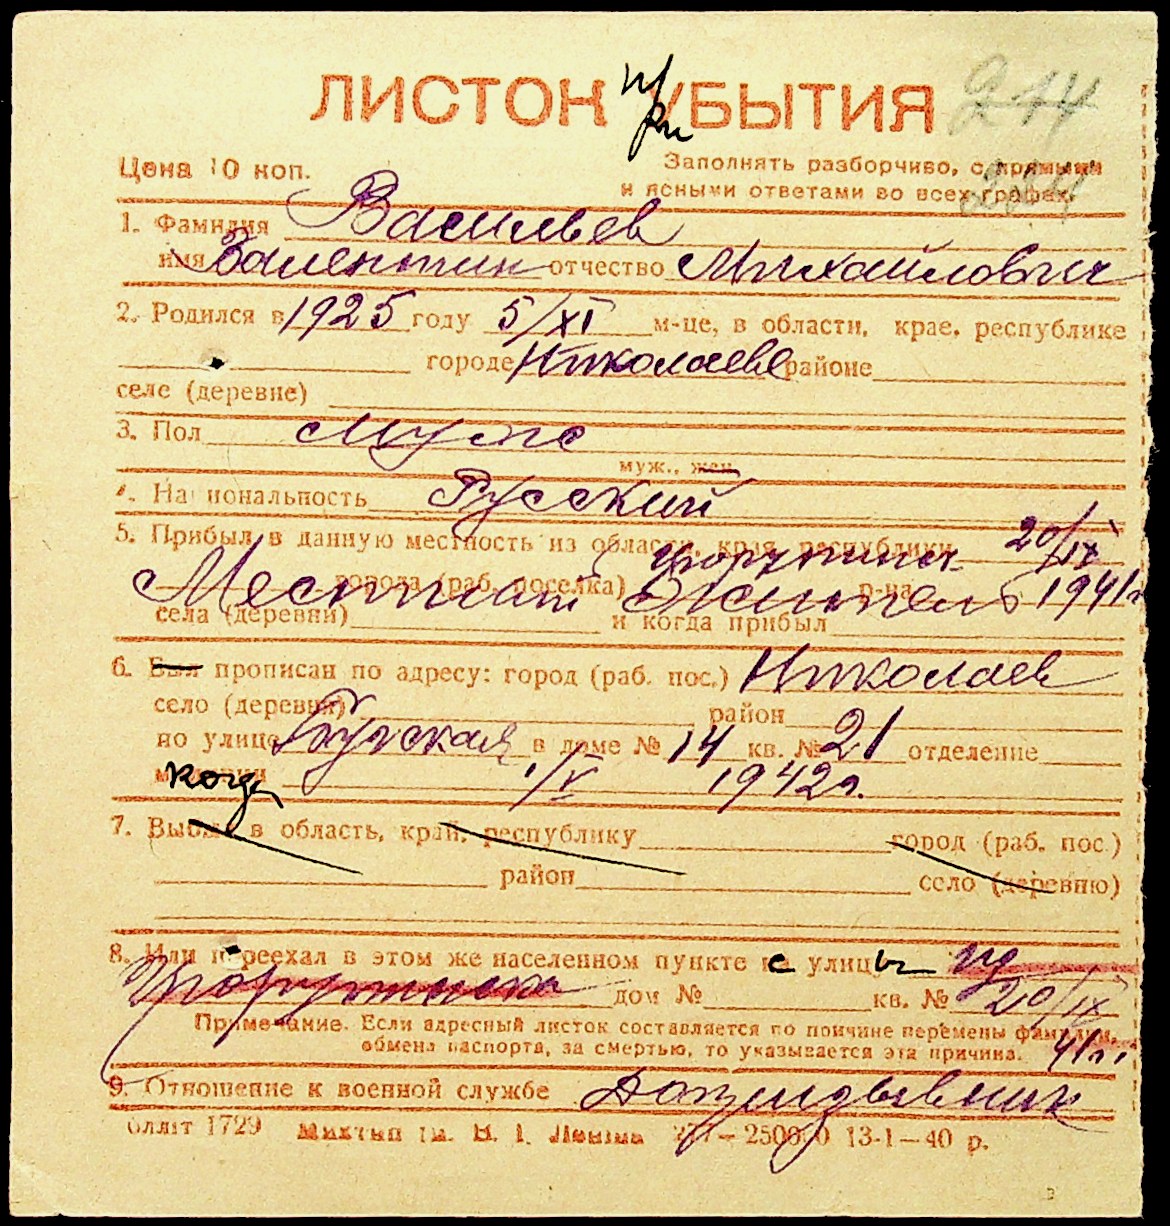 ЛИСТОК при УБЫТИЯ 214
Цена 10 коп. Заполнять разборчиво, с прямыми
и ясными ответами во всех графах.
1. Фамилия Васильев
имя Валентин отчество Михайлович
2. Родился в 1925 году 5/XI м-це, в области, крае, республике
городе Николаеве районе
селе (деревне)
3. Пол муже
муж., жен.
4. Национальность Русский
5. Прибыл в данную местность из области, края, республики 20/IX
города (раб. поселка) р-на 1941г
Местный Житель
села (деревни) и когда прибыл
6. Был прописан по адресу: город (раб. пос.) Николаев
село (деревня) район
по улице Бугская в доме № 14 кв. № 21 отделение
милиции когда 1/V 1942г.
7. Выбыл в область, край, республику город (раб. пос.)
район село (деревню)
8. Или переехал в этом же населенном пункте с улицы
дом № кв. № 20/IX
Примечание. Если адресный листок составляется по причине перемены фамилии,
обмена паспорта, за смертью, то указывается эта причина. 41г.
9. Отношение к военной службе Допризывник
1729 Ленина 250000 13-1—40 р.